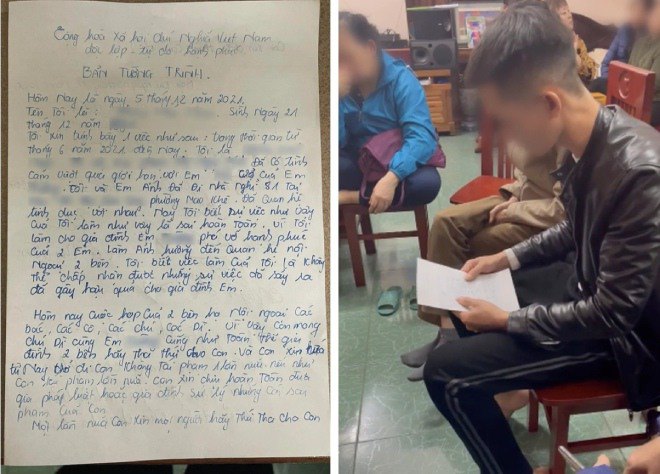 Cộng hoà xã hội chủ Nghĩa Việt Nam
độc lập - tự do - hạnh phúc
BẢN TƯỜNG TRÌNH.
Hôm Nay là ngày 5 tháng 12 năm 2021.
Tên Tôi là: Sinh Ngày 21
tháng 12 năm
Tôi xin trình bày 1 việc như sau: Trong thời gian từ
tháng 6 năm 2021 đến nay. Tôi là
Đã có tình
cảm vượt quá giới hạn với Em Của Em
. Tôi và Em Anh Đã Đi nhà Nghỉ 81 Tại
phường Mạo Khê. Đã Quan hệ
tình dục với nhau. Nay Tôi biết sự việc như vậy
Của Tôi làm như vậy là sai hoàn Toàn. Vì Tôi
làm cho gia đình Em phá vỡ hạnh phúc
Của 2 Em. Làm Ảnh hưởng đến Quan hệ nội
Ngoại 2 bên. Tôi biết việc làm Của Tôi là không
Thể chấp nhận được nhưng sự việc đã sảy ra
đã gây hậu quả cho gia đình Em.
Hôm nay cuộc họp Của 2 bên họ Nội ngoại Các
bác, Các Cô, Các chú, Các Dì. Vì vậy Con mong
chú Dì cùng Em Cùng như Toàn Thể gia
đình 2 bên hãy Tha thứ cho Con. Và Con xin hứa
từ Nay trở đi Con Không Tái phạm lần nữa nếu như
Con tái phạm lần nữa. Con xin chịu hoàn Toàn trước
pháp luật hoặc gia đình sử lý những Cái sai
phạm Của Con
Một lần nữa Con Xin mọi người hãy Thứ Tha Cho Con